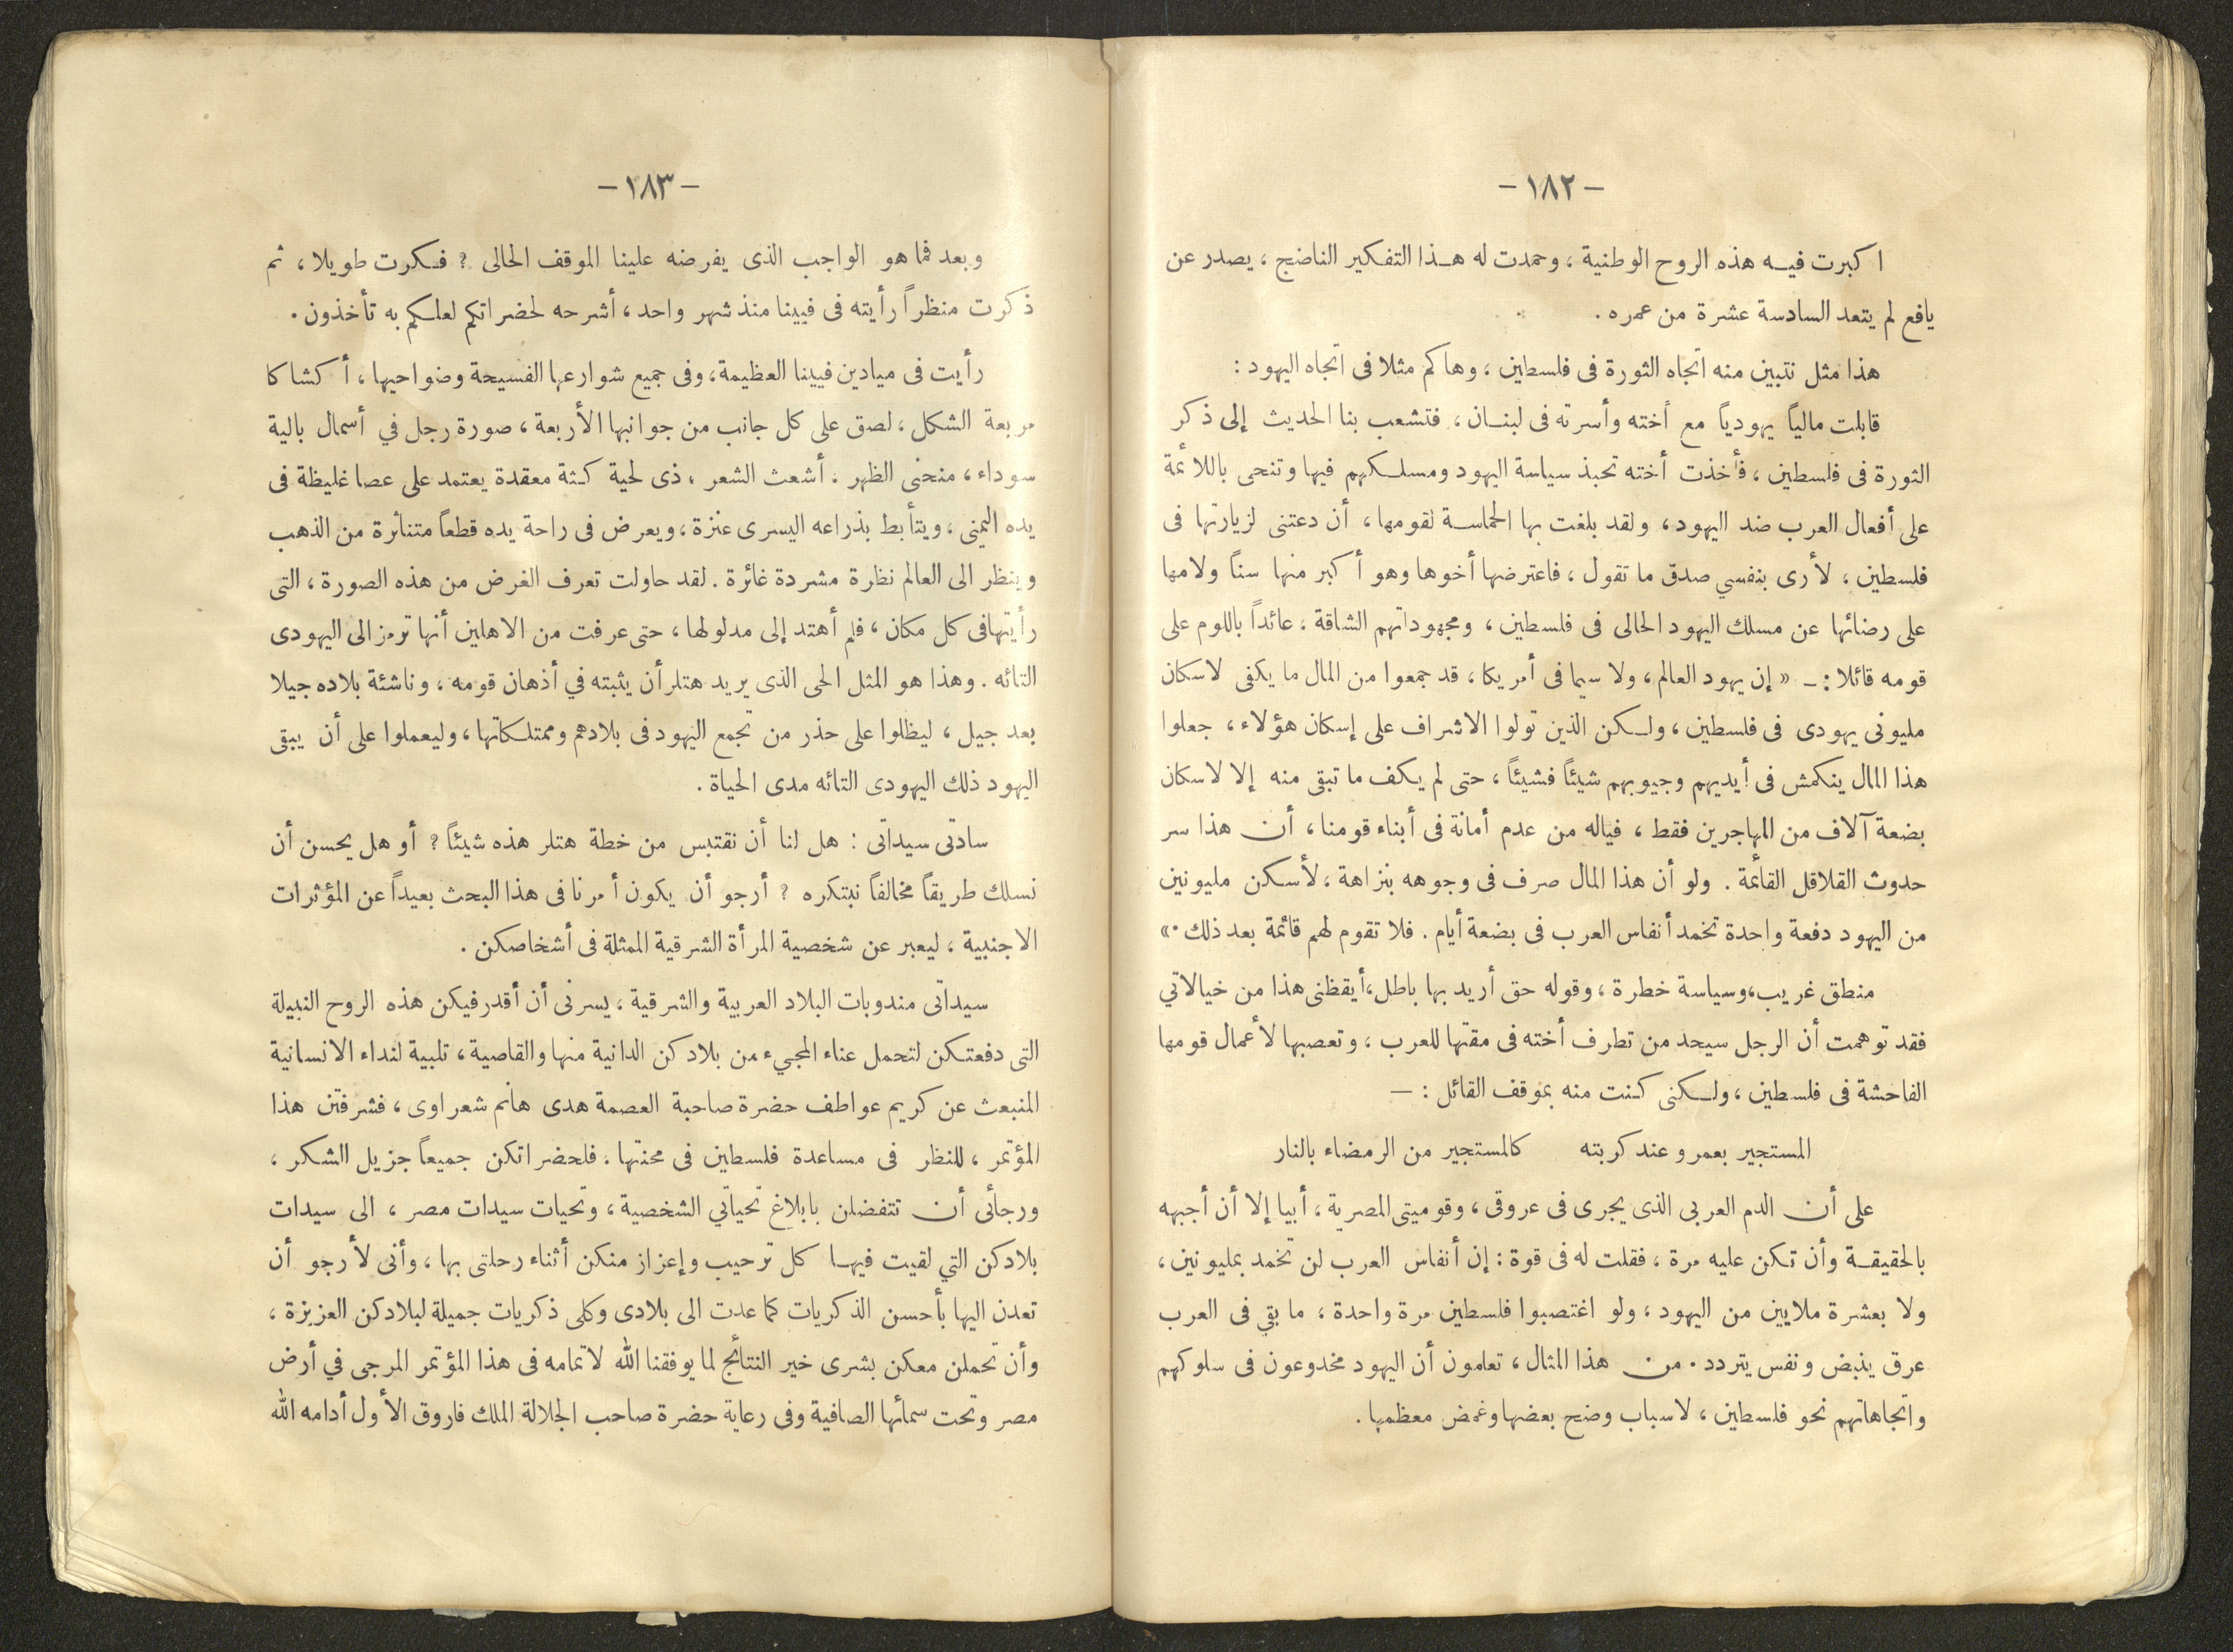 — ١٨٢ —
اكبرت فيه هذه الروح الوطنية ، وحمدت له هذا التفكير الناضج ، يصدر عن
يافع لم يتعد السادسة عشرة من عمره .
هذا مثل نتبين منه اتجاه الثورة فى فلسطين ، وهاكم مثلا فى اتجاه اليهود :
قابلت مالياً يهودياً مع أخته وأسرته فى لبنان ، فتشعب بنا الحديث إلى ذكر
الثورة فى فلسطين ، فأخذت أخته تحبذ سياسة اليهود ومسلكهم فيها وتنحى باللائمة
على أفعال العرب ضد اليهود ، ولقد بلغت بها الحماسة لقومها ، أن دعتنى لزيارتها فى
فلسطين ، لأرى بنفسي صدق ما تقول ، فاعترضها أخوها وهو أكبر منها سناً ولامها
على رضائها عن مسلك اليهود الحالى فى فلسطين ، ومجهوداتهم الشاقة ، عائداً باللوم على
قومه قائلا : — « إن يهود العالم ، ولا سيما فى أمريكا ، قد جمعوا من المال ما يكفى لاسكان
مليونى يهودى فى فلسطين ، ولكن الذين تولوا الاشراف على إسكان هؤلاء ، جعلوا
هذا المال ينكمش فى أيديهم وجيوبهم شيئاً فشيئاً ، حتى لم يكف ما تبقى منه إلا لاسكان
بضعة آلاف من المهاجرين فقط ، فياله من عدم أمانة فى أبناء قومنا ، أن هذا سر
حدوث القلاقل القائمة . ولو أن هذا المال صرف فى وجوهه بنزاهة ، لأسكن مليونين
من اليهود دفعة واحدة تخمد أنفاس العرب فى بضعة أيام . فلا تقوم لهم قائمة بعد ذلك . »
منطق غريب ، وسياسة خطرة ، وقوله حق أريد بها باطل ، أيقظنى هذا من خيالاتي
فقد توهمت أن الرجل سيحد من تطرف أخته فى مقتها للعرب ، وتعصبها لأعمال قومها
الفاحشة فى فلسطين ، ولكنى كنت منه بموقف القائل : —
المستجير بعمرو عند كربته كالمستجير من الرمضاء بالنار
على أن الدم العربى الذى يجرى فى عروقى ، وقوميتى المصرية ، أبيا إلا أن أجبهه
بالحقيقة وأن تكن عليه مرة ، فقلت له فى قوة : إن أنفاس العرب لن تخمد بمليونين ،
ولا بعشرة ملايين من اليهود ، ولو اغتصبوا فلسطين مرة واحدة ، ما بقي فى العرب
عرق ينبض ونفس يتردد . من هذا المثال ، تعلمون أن اليهود مخدوعون فى سلوكهم
واتجاهاتهم نحو فلسطين ، لاسباب وضح بعضها وغمض معظمها .
— ١٨٣ —
وبعد فما هو الواجب الذى يفرضه علينا الموقف الحالى ؟ فكرت طويلا ، ثم
ذكرت منظراً رأيته فى فيينا منذ شهر واحد ، أشرحه لحضراتكم لعلكم به تأخذون .
رأيت فى ميادين فيينا العظيمة ، وفى جميع شوارعها الفسيحة وضواحيها ، أكشاكا
مربعة الشكل ، لصق على كل جانب من جوانبها الأربعة ، صورة رجل في أسمال بالية
سوداء ، منحنى الظهر ، أشعث الشعر ، ذى لحية كثة معقدة يعتمد على عصا غليظة فى
يده اليمنى ، ويتأبط بذراعه اليسرى عنزة ، ويعرض فى راحة يده قطعاً متناثرة من الذهب
وينظر الى العالم نظرة مشردة غائرة . لقد حاولت تعرف الغرض من هذه الصورة ، التى
رأيتها فى كل مكان ، فلم أهتد إلى مدلولها ، حتى عرفت من الاهلين أنها ترمز الى اليهودى
التائه . وهذا هو المثل الحى الذى يريد هتلر أن يثبته في أذهان قومه ، وناشئة بلاده جيلا
بعد جيل ، ليظلوا على حذر من تجمع اليهود فى بلادهم وممتلكاتها ، وليعملوا على أن يبقى
اليهود ذلك اليهودى التائه مدى الحياة .
سادتى سيداتى : هل لنا أن نقتبس من خطة هتلر هذه شيئاً ؟ أو هل يحسن أن
نسلك طريقاً مخالفاً نبتكره ؟ أرجو أن يكون أمرنا فى هذا البحث بعيداً عن المؤثرات
الاجنبية ، ليعبر عن شخصية المرأة الشرقية الممثلة فى أشخاصكن .
سيداتى مندوبات البلاد العربية والشرقية ، يسرنى أن أقدر فيكن هذه الروح النبيلة
التى دفعتكن لتحمل عناء المجيء من بلادكن الدانية منها والقاصية ، تلبية لنداء الانسانية
المنبعث عن كريم عواطف حضرة صاحبة العصمة هدى هانم شعراوى ، فشرفتن هذا
المؤتمر ، للنظر فى مساعدة فلسطين فى محنتها . فلحضراتكن جميعاً جزيل الشكر ،
ورجائى أن تتفضلن بابلاغ تحياتي الشخصية ، وتحيات سيدات مصر ، الى سيدات
بلادكن التي لقيت فيها كل ترحيب وإعزاز منكن أثناء رحلتى بها ، وأنى لأرجو أن
تعدن اليها بأحسن الذكريات كما عدت الى بلادى وكلى ذكريات جميلة لبلادكن العزيزة ،
وأن تحملن معكن بشرى خير النتائج لما يوفقنا الله لاتمامه فى هذا المؤتمر المرجى في أرض
مصر وتحت سمائها الصافية وفى رعاية حضرة صاحب الجلالة الملك فاروق الأول أدامه الله